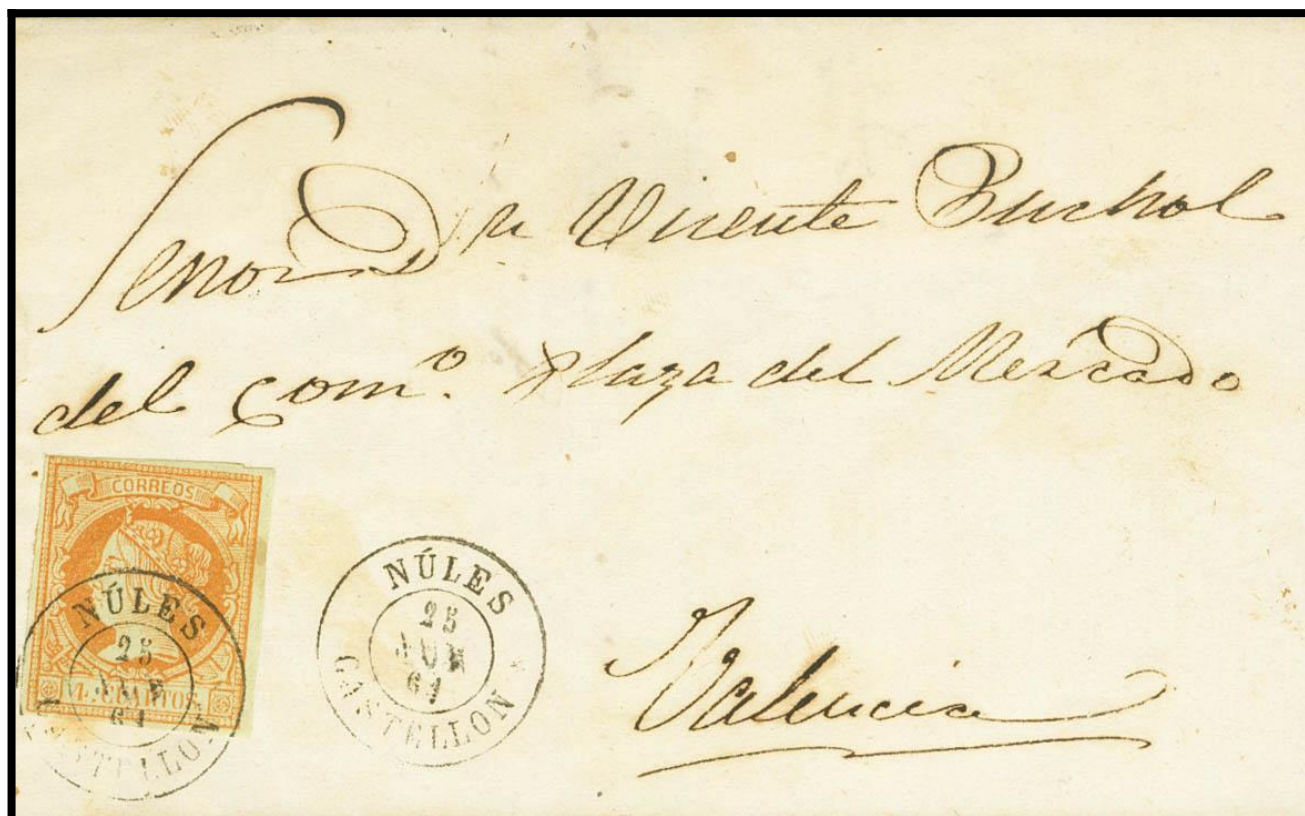 Señor Dn Vicente Buchol
del Comº. Plaza del Mercado
CORREOS
CUARTOS
NÚLES
25
JUN
61
CASTELLON
NÚLES
25
JUN
61
CASTELLON
Valencia